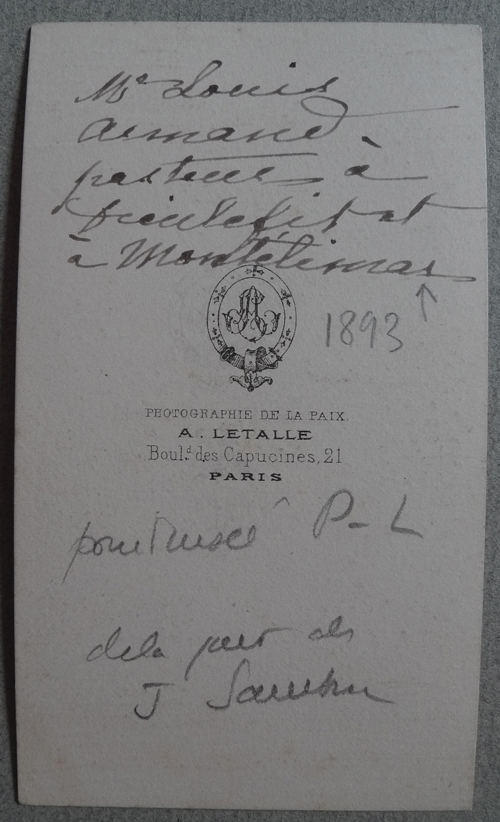 Mr Louis
Armand
pasteur à
Dieulefit et
à Montélimar
1893
PHOTOGRAPHIE DE LA PAIX.
A. LETALLE
Boul.d des Capucines, 21
PARIS
pour Musée P-L
de la part de
J